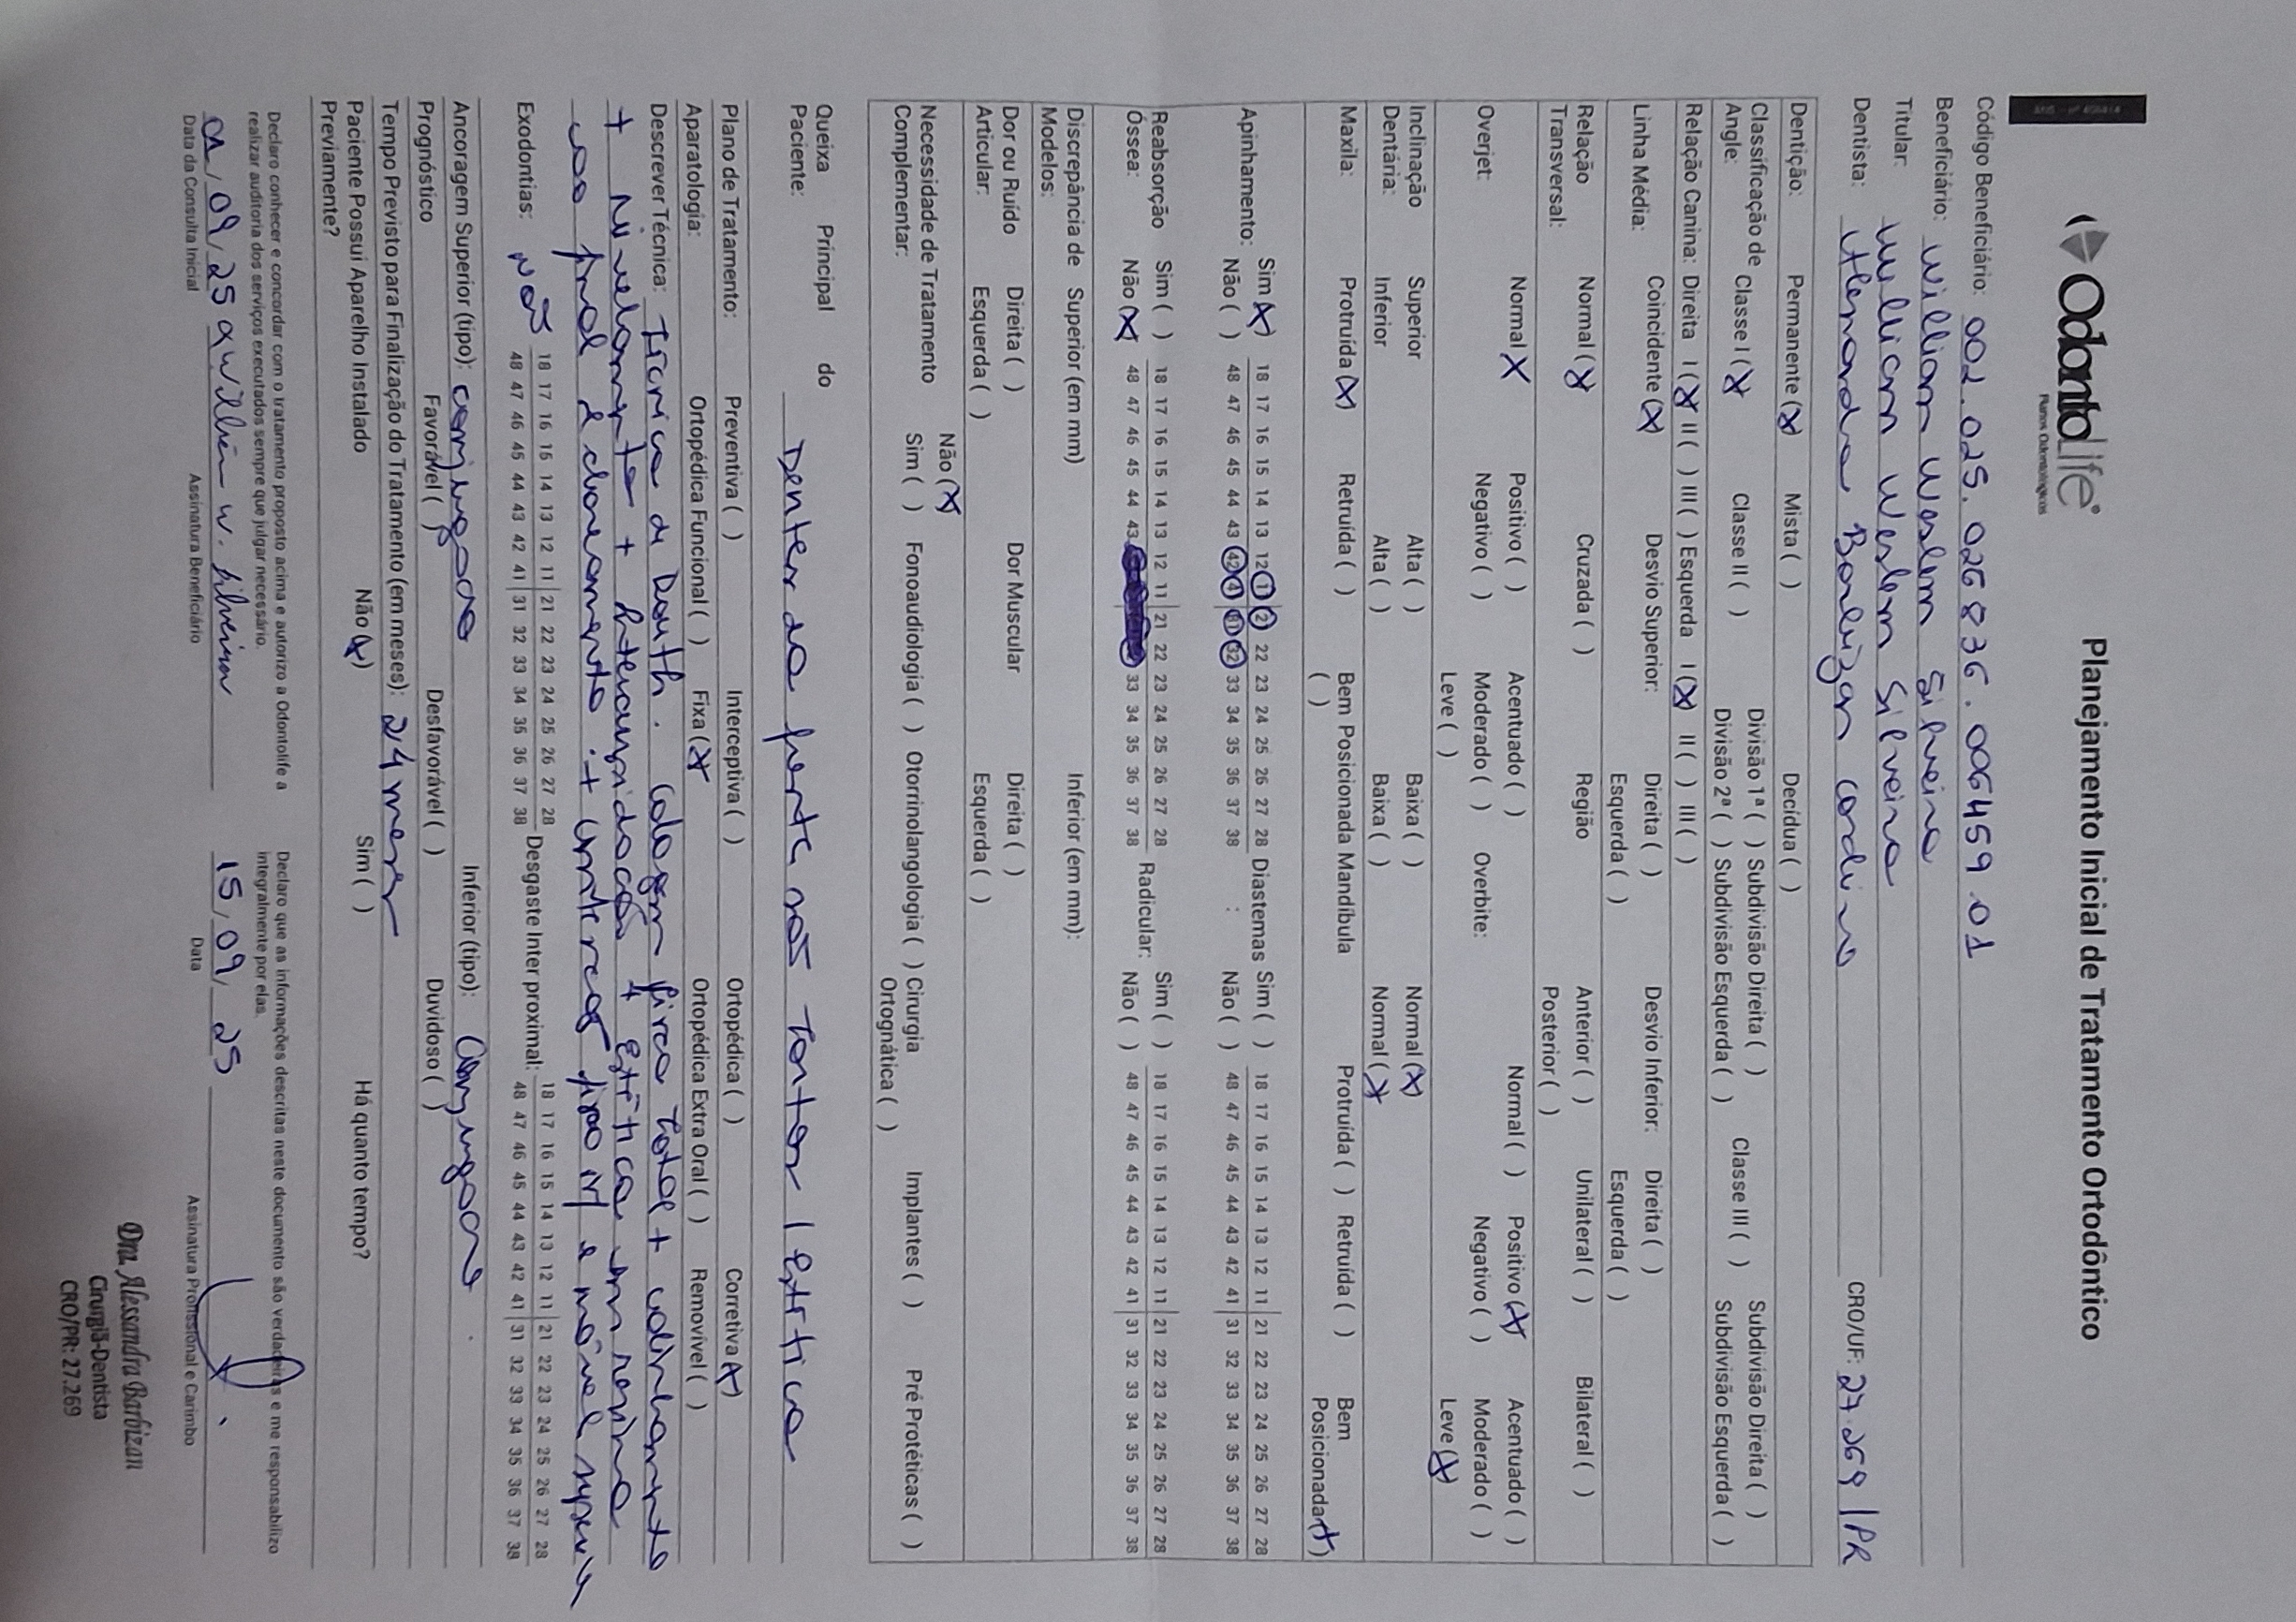 OdontoLife®
Planos Odontológicos
Planejamento Inicial de Tratamento Ortodôntico
Código Beneficiário: 002.025.026836.006459.01
Beneficiário: Willian Weslem Silveira
Titular: Willian Weslem Silveira
Dentista: Alessandra Barbizan CRO/UF: 27.269 / PR
Dentição: Permanente (X) Mista ( ) Decídua ( )
Classificação de Angle: Classe I (X) Classe II ( ) Divisão 1ª ( ) Subdivisão Direita ( ) Classe III ( ) Subdivisão Direita ( )
Divisão 2ª ( ) Subdivisão Esquerda ( ) Subdivisão Esquerda ( )
Relação Canina: Direita I (X) II ( ) III ( ) Esquerda I (X) II ( ) III ( )
Linha Média: Coincidente (X) Desvio Superior: Direita ( ) Desvio Inferior: Direita ( )
Esquerda ( ) Esquerda ( )
Relação Transversal: Normal (X) Cruzada ( ) Região Anterior ( ) Unilateral ( ) Bilateral ( )
Posterior ( )
Overjet: Normal X Positivo ( ) Acentuado ( ) Overbite: Normal ( ) Positivo (X) Acentuado ( )
Negativo ( ) Moderado ( ) Negativo ( ) Moderado ( )
Leve ( ) Leve (X)
Inclinação Dentária: Superior Alta ( ) Baixa ( ) Normal (X)
Inferior Alta ( ) Baixa ( ) Normal (X)
Maxila: Protruída (X) Retruída ( ) Bem Posicionada ( ) Mandíbula Protruída ( ) Retruída ( ) Bem Posicionada (X)
Apinhamento: Sim (X) 18 17 16 15 14 13 12 11 21 22 23 24 25 26 27 28 Diastemas : Sim ( ) 18 17 16 15 14 13 12 11 21 22 23 24 25 26 27 28
Não ( ) 48 47 46 45 44 43 42 41 31 32 33 34 35 36 37 38 Não ( ) 48 47 46 45 44 43 42 41 31 32 33 34 35 36 37 38
Reabsorção Óssea: Sim ( ) 18 17 16 15 14 13 12 11 21 22 23 24 25 26 27 28 Radicular: Sim ( ) 18 17 16 15 14 13 12 11 21 22 23 24 25 26 27 28
Não (X) 48 47 46 45 44 43 33 34 35 36 37 38 Não ( ) 48 47 46 45 44 43 42 41 31 32 33 34 35 36 37 38
Discrepância de Modelos: Superior (em mm) Inferior (em mm):
Dor ou Ruído Articular: Direita ( ) Dor Muscular Direita ( )
Esquerda ( ) Esquerda ( )
Necessidade de Tratamento Complementar: Não (X)
Sim ( ) Fonoaudiologia ( ) Otorrinolangologia ( ) Cirurgia Ortognática ( ) Implantes ( ) Pré Protéticas ( )
Queixa Principal do Paciente: Dentes da frente são tortos / Estética
Plano de Tratamento: Preventiva ( ) Interceptiva ( ) Ortopédica ( ) Corretiva (X)
Aparatologia: Ortopédica Funcional ( ) Fixa (X) Ortopédica Extra Oral ( ) Removível ( )
Descrever Técnica: Técnica de Routh. Colagem fixa total + alinhamento
+ nivelamento + intercuspidação + Estética em resina
no final e clareamento. + contenção fixa inf e móvel superior
Exodontias: Não 18 17 16 15 14 13 12 11 21 22 23 24 25 26 27 28 Desgaste Inter proximal: 18 17 16 15 14 13 12 11 21 22 23 24 25 26 27 28
48 47 46 45 44 43 42 41 31 32 33 34 35 36 37 38 48 47 46 45 44 43 42 41 31 32 33 34 35 36 37 38
Ancoragem Superior (tipo): conjugado Inferior (tipo): conjugado
Prognóstico Favorável ( ) Desfavorável ( ) Duvidoso ( )
Tempo Previsto para Finalização do Tratamento (em meses): 24 meses
Paciente Possui Aparelho Instalado Previamente? Não (X) Sim ( ) Há quanto tempo?
Declaro conhecer e concordar com o tratamento proposto acima e autorizo a Odontolife a
realizar auditoria dos serviços executados sempre que julgar necessário.
Declaro que as informações descritas neste documento são verdadeiras e me responsabilizo
integralmente por elas.
09 / 25 Willian W. Silveira 15 / 09 / 25
Data da Consulta Inicial Assinatura Beneficiário Data Assinatura Profissional e Carimbo
Dra Alessandra Barbizan
Cirurgiã-Dentista
CRO/PR: 27.269